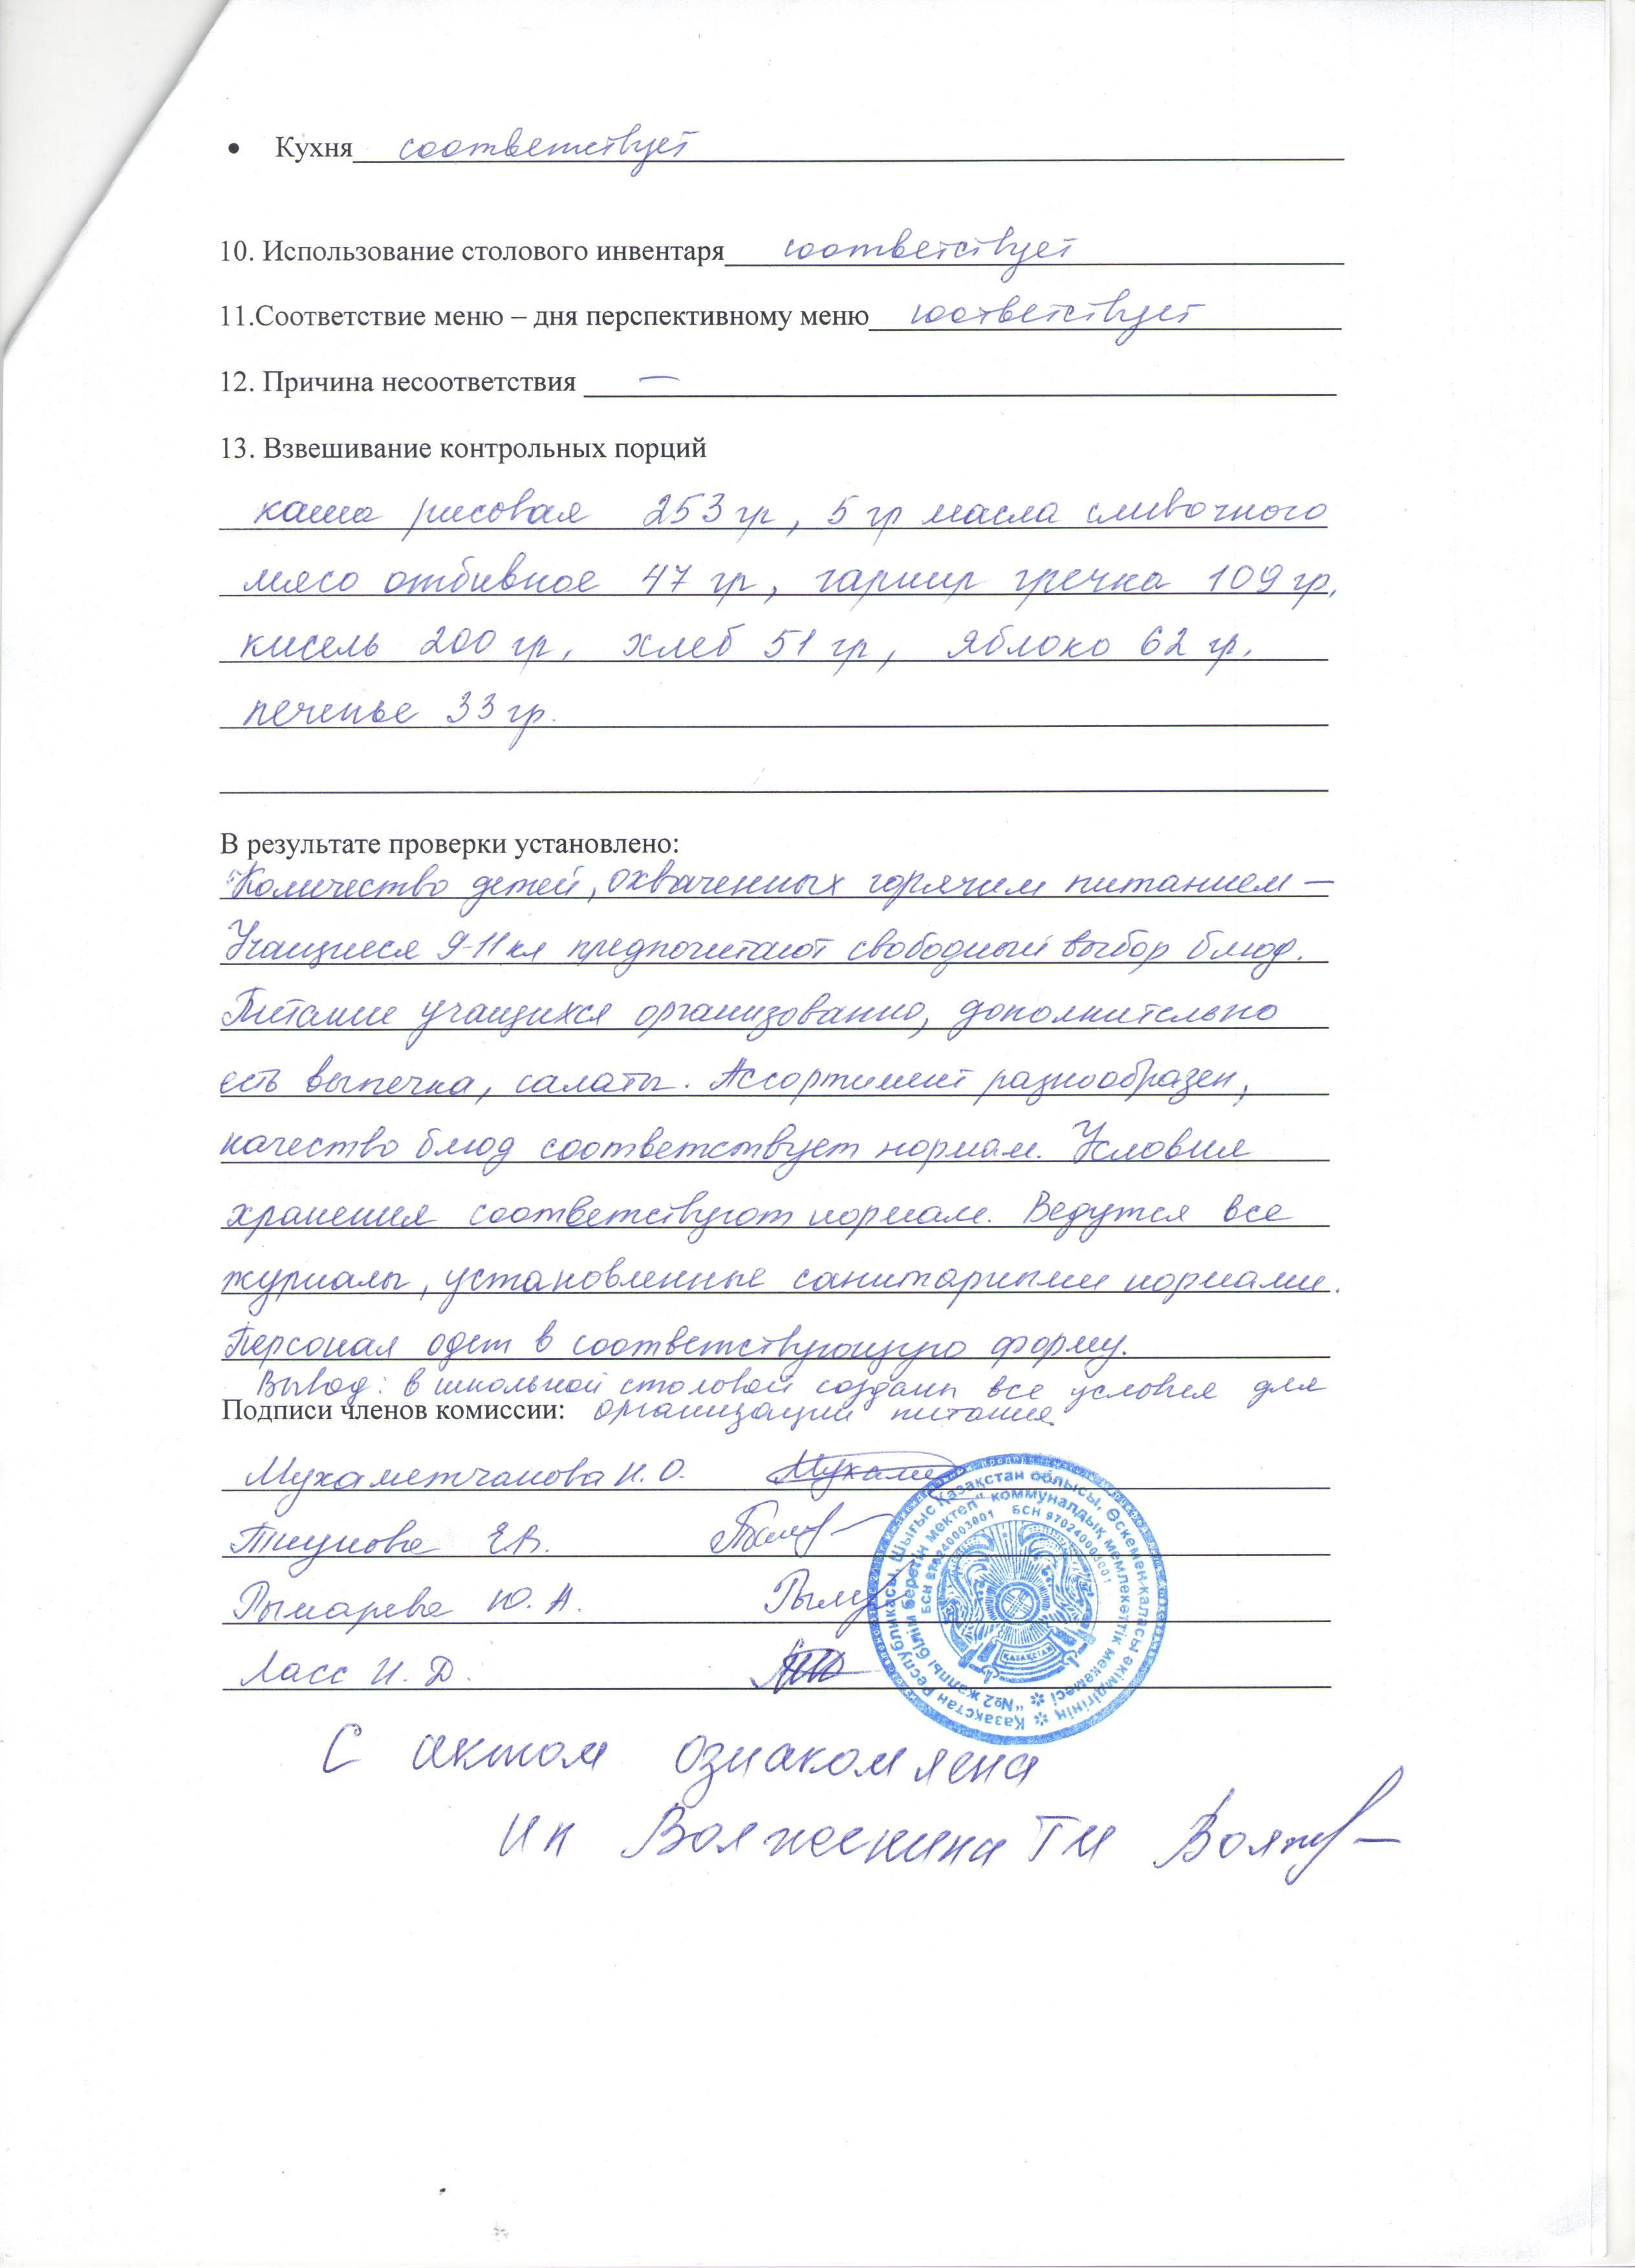 • Кухня соответствует
10. Использование столового инвентаря соответствует
11.Соответствие меню – дня перспективному меню соответствует
12. Причина несоответствия —
13. Взвешивание контрольных порций
каша рисовая 253 гр, 5 гр масла сливочного
мясо отбивное 47 гр, гарнир гречка 109 гр,
кисель 200 гр, хлеб 51 гр, яблоко 62 гр,
печенье 33 гр.
В результате проверки установлено:
Количество детей, охваченных горячим питанием —
Учащиеся 9-11 кл предпочитают свободный выбор блюд.
Питание учащихся организованно, дополнительно
есть выпечка, салаты. Ассортимент разнообразен,
качество блюд соответствует нормам. Условия
хранения соответствуют нормам. Ведутся все
журналы, установленные санитарными нормами.
Персонал одет в соответствующую форму.
Вывод: в школьной столовой созданы все условия для
Подписи членов комиссии: организации питания
Мухаметчанова Н. О.
Тиунова Е.В.
Рымарева Ю. А.
Ласс И. Д.
Қазақстан Республикасы, Шығыс Қазақстан облысы, Өскемен қаласы әкімдігінің
"№2 жалпы білім беретін мектеп" коммуналдық мемлекеттік мекемесі
БСН 970240003001 БСН 970240003001
ҚАЗАҚСТАН
С актом ознакомлена
ИП Волженина ТИ